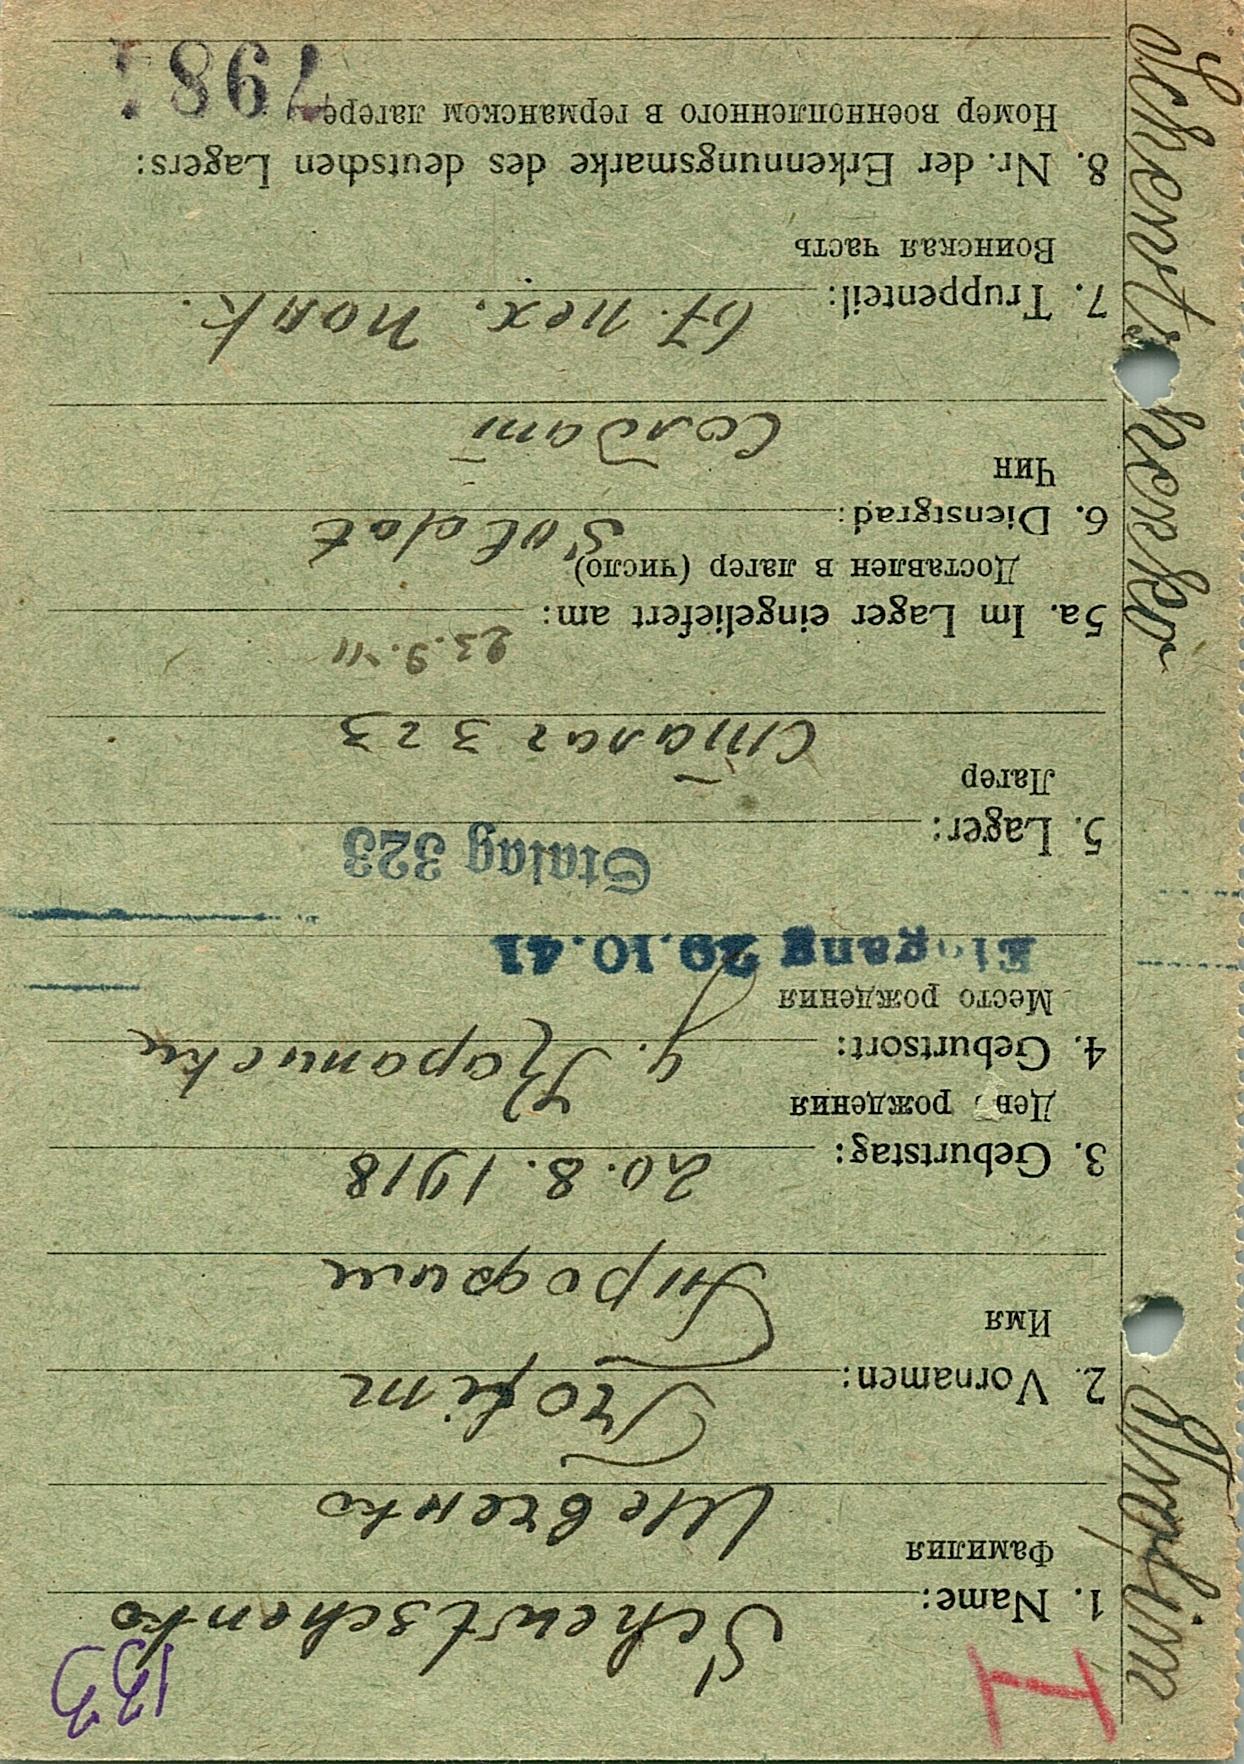 133
I
1. Name: Schewtschenko
Фамилия
Шевченко
2. Vornamen: Trofim
Имя
Трофим
3. Geburtstag: 20.8.1918
День рождения
4. Geburtsort:
Место рождения
Eingang 29.10.41
Stalag 323
5. Lager:
Лагер
Сталаг 323
23.9.41
5a. Im Lager eingeliefert am:
Доставлен в лагер (число)
6. Dienstgrad: Soldat
Чин
Солдат
7. Truppenteil: 67. пех. полк.
Воинская часть
8. Nr. der Erkennungsmarke des deutschen Lagers:
Номер военнопленного в германском лагере
Trofim